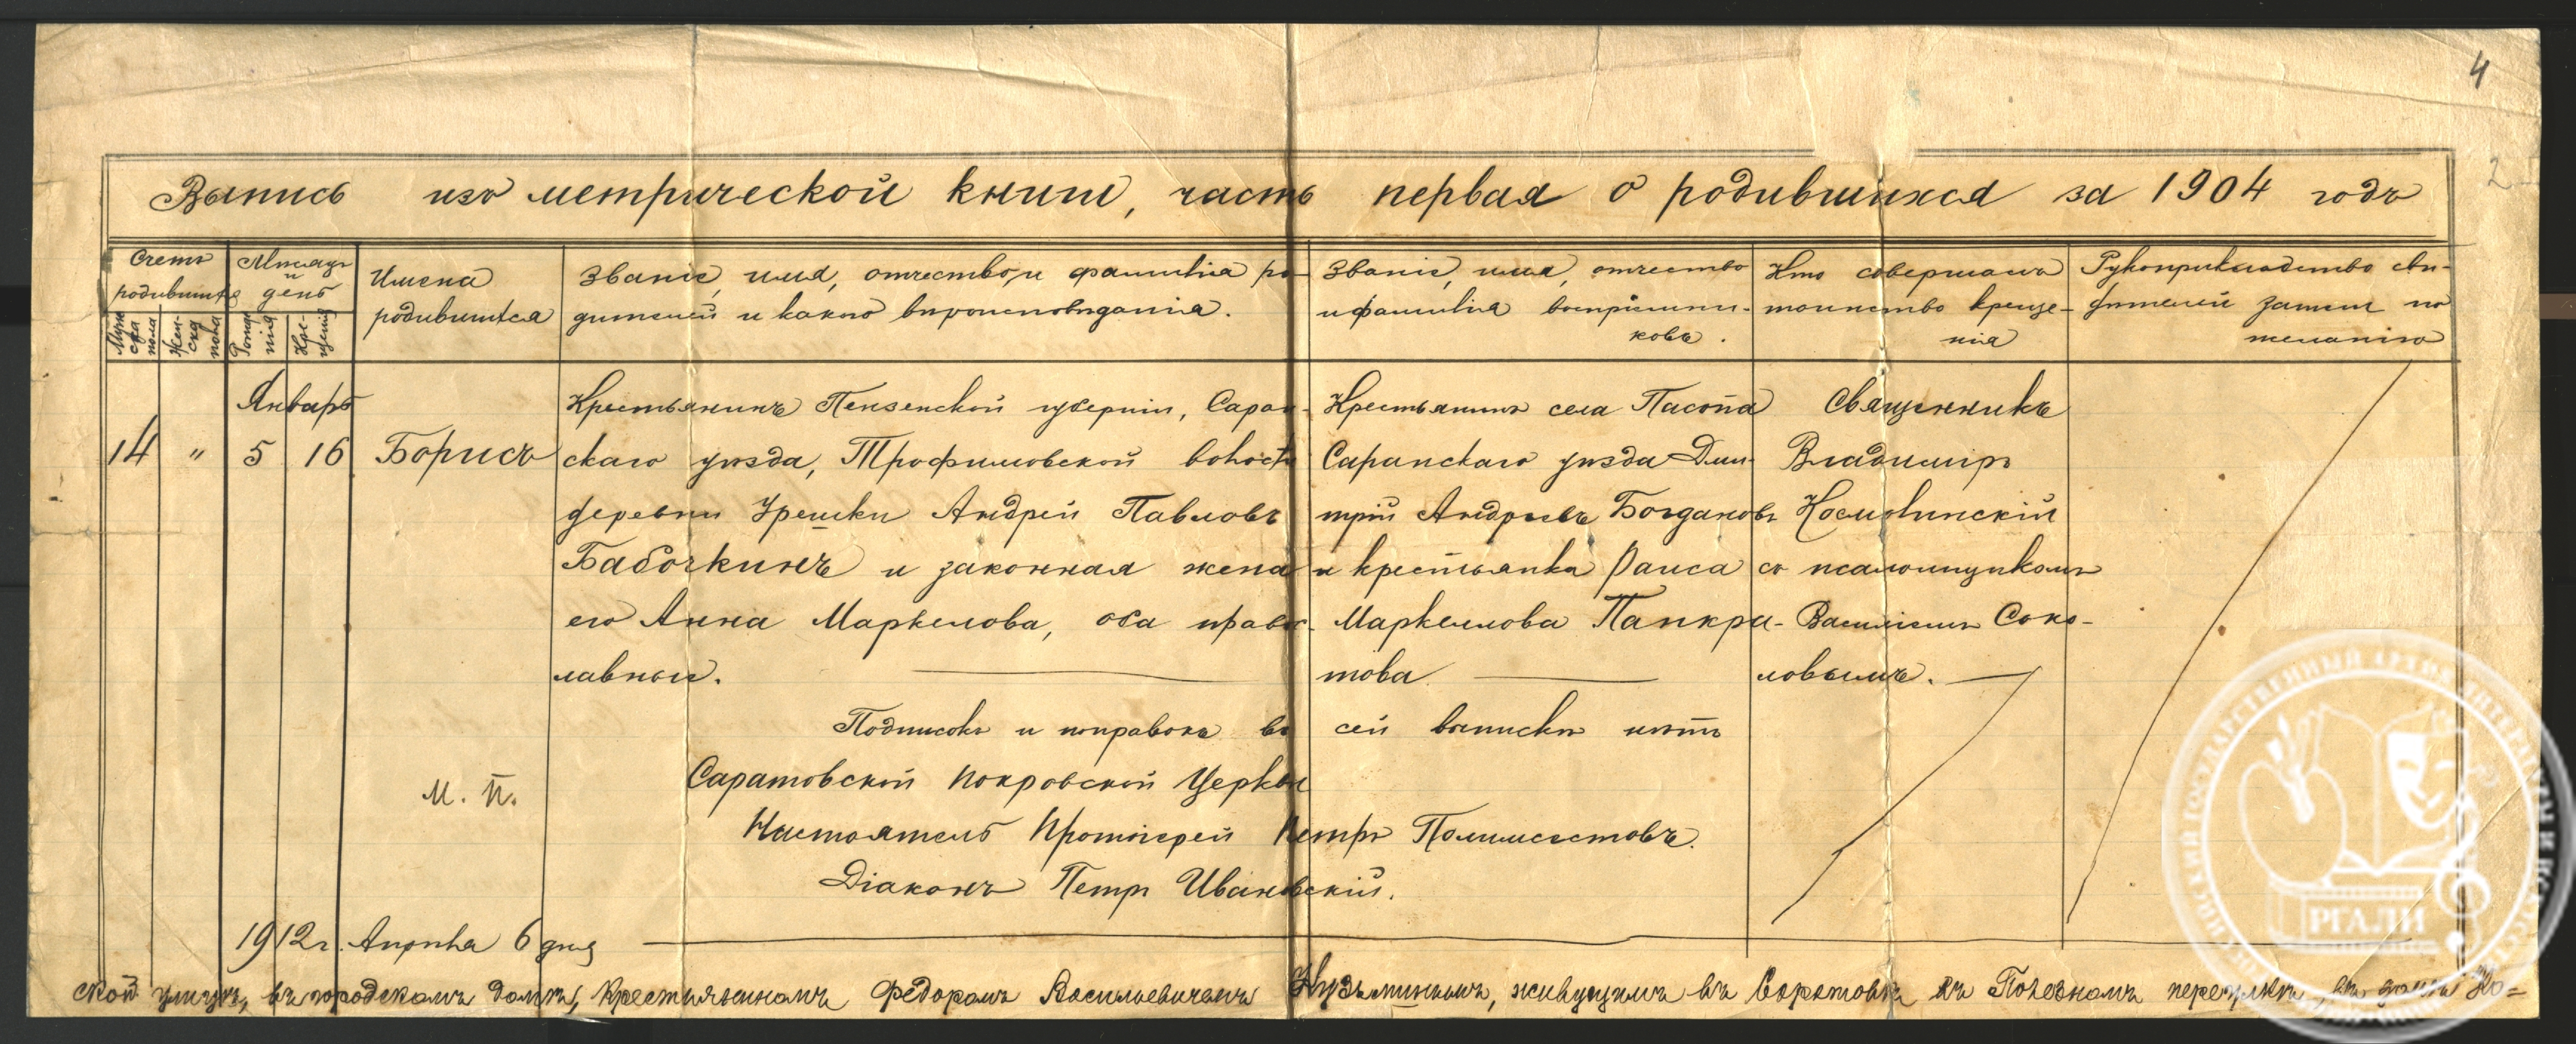 4
2
Выпись изъ метрической книги, часть первая о родившихся за 1904 годъ
Счетъ родившихся
Мужеска пола
Женска пола
Мѣсяцъ и день
Рожденія
Крещенія
Имена
родившихся
Званіе, имя, отчество, и фамилія ро-
дителей и какого вѣроисповѣданія.
Званіе, имя, отчество
и фамилія воспріемни-
ковъ.
Кто совершалъ
таинство креще-
нія
Рукоприкладство сви-
дѣтелей записи по
желанію
Январь
14 " 5 16 Борисъ
Крестьянинъ Пензенской губерніи, Саран-
скаго уѣзда, Трофимовской волости
деревни Урешки Андрей Павловъ
Бабочкинъ и законная жена
его Анна Маркелова, оба право-
лавные.
Крестьянинъ села Посопа
Саранскаго уѣзда Дми-
трій Андреевъ Богдановъ
и крестьянка Раиса
Маркеллова Панкра-
това
Священникъ
Владиміръ
Космолинскій
съ псаломщикомъ
Василіемъ Соко-
ловымъ.
Подписокъ и поправокъ въ сей выписки нѣтъ
Саратовской Покровской Церкви
М. П.
Настоятель Протоіерей Петръ Полимсестовъ.
Діаконъ Петръ Ивановскій.
1912 г. Апрѣля 6 дня
ской улицѣ, въ городскомъ домѣ, крестьяниномъ Федоромъ Васильевичемъ Кузьминымъ, живущимъ въ Саратовѣ въ переулкѣ, въ домѣ
РГАЛИ